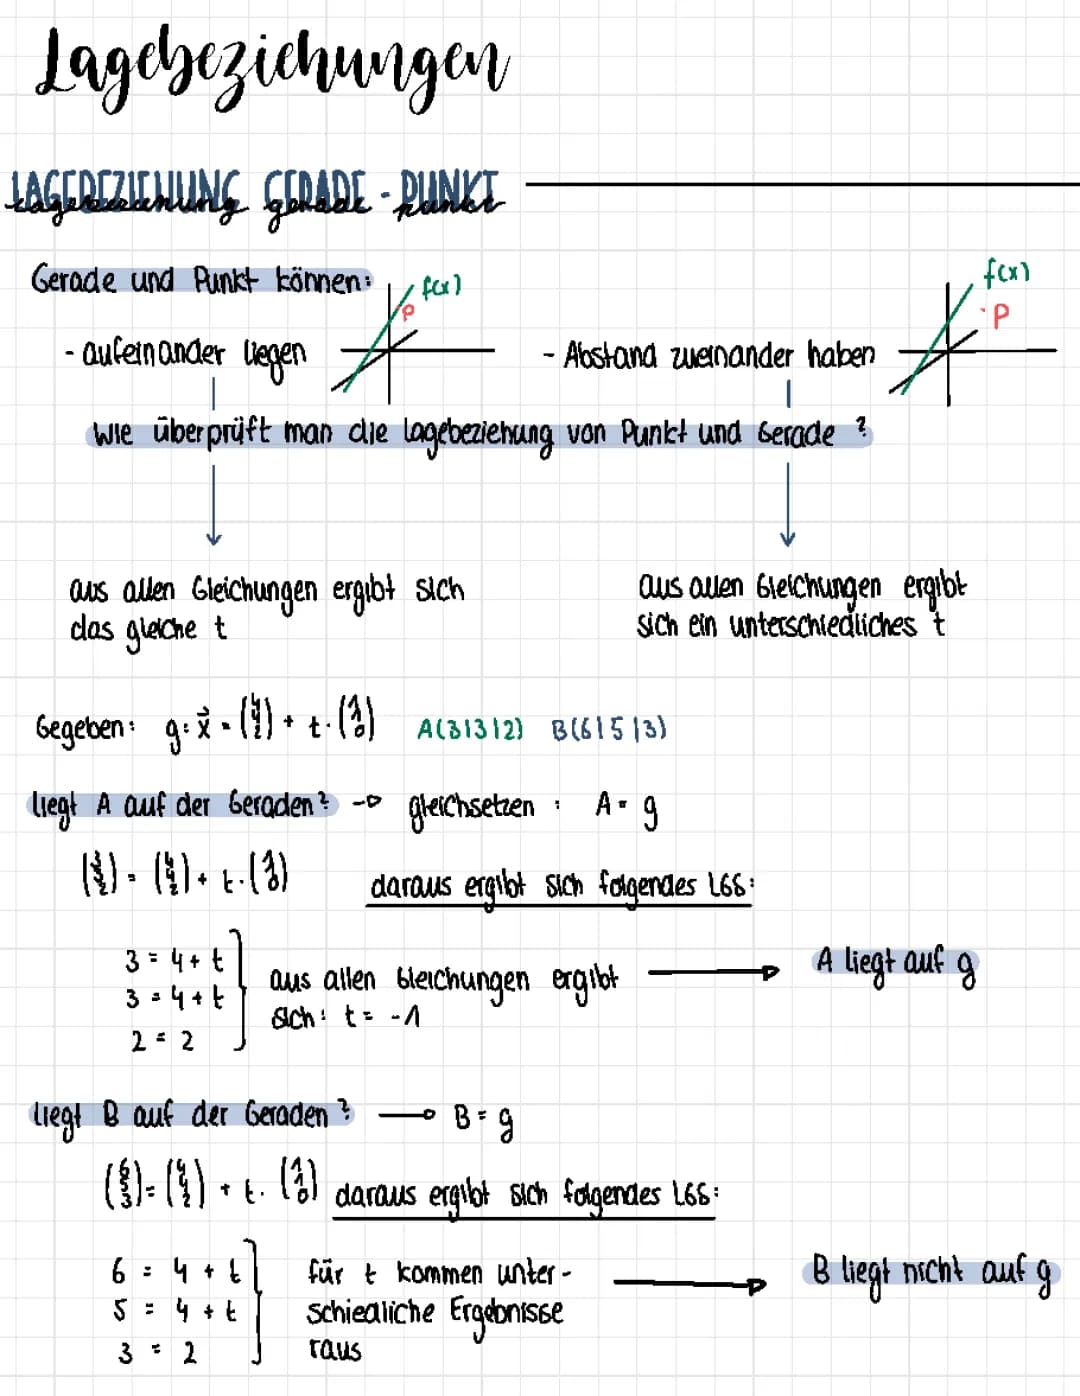 Lagebeziehungen
LAGEBEZIEHUNG GERADE - PUNKT
Lagebeziehung gerade punkt
Gerade und Punkt können:
f(x)
P
f(x)
P
- aufeinander liegen
- Abstand zueinander haben
Wie überprüft man die Lagebeziehung von Punkt und Gerade ?
aus allen Gleichungen ergibt sich
das gleiche t
aus allen Gleichungen ergibt
sich ein unterschiedliches t
Gegeben: g: x⃗ = (4 4 2) + t · (1 1 0) A(3|3|2) B(6|5|3)
liegt A auf der Geraden? → gleichsetzen : A = g
(3 3 2) = (4 4 2) + t · (1 1 0)
daraus ergibt sich folgendes LGS:
3 = 4 + t
3 = 4 + t
2 = 2
aus allen Gleichungen ergibt
sich: t = -1
A liegt auf g
liegt B auf der Geraden ? → B = g
(6 5 3) = (4 4 2) + t · (1 1 0) daraus ergibt sich folgendes LGS:
6 = 4 + t
5 = 4 + t
3 = 2
für t kommen unter-
schiedliche Ergebnisse
raus
B liegt nicht auf g